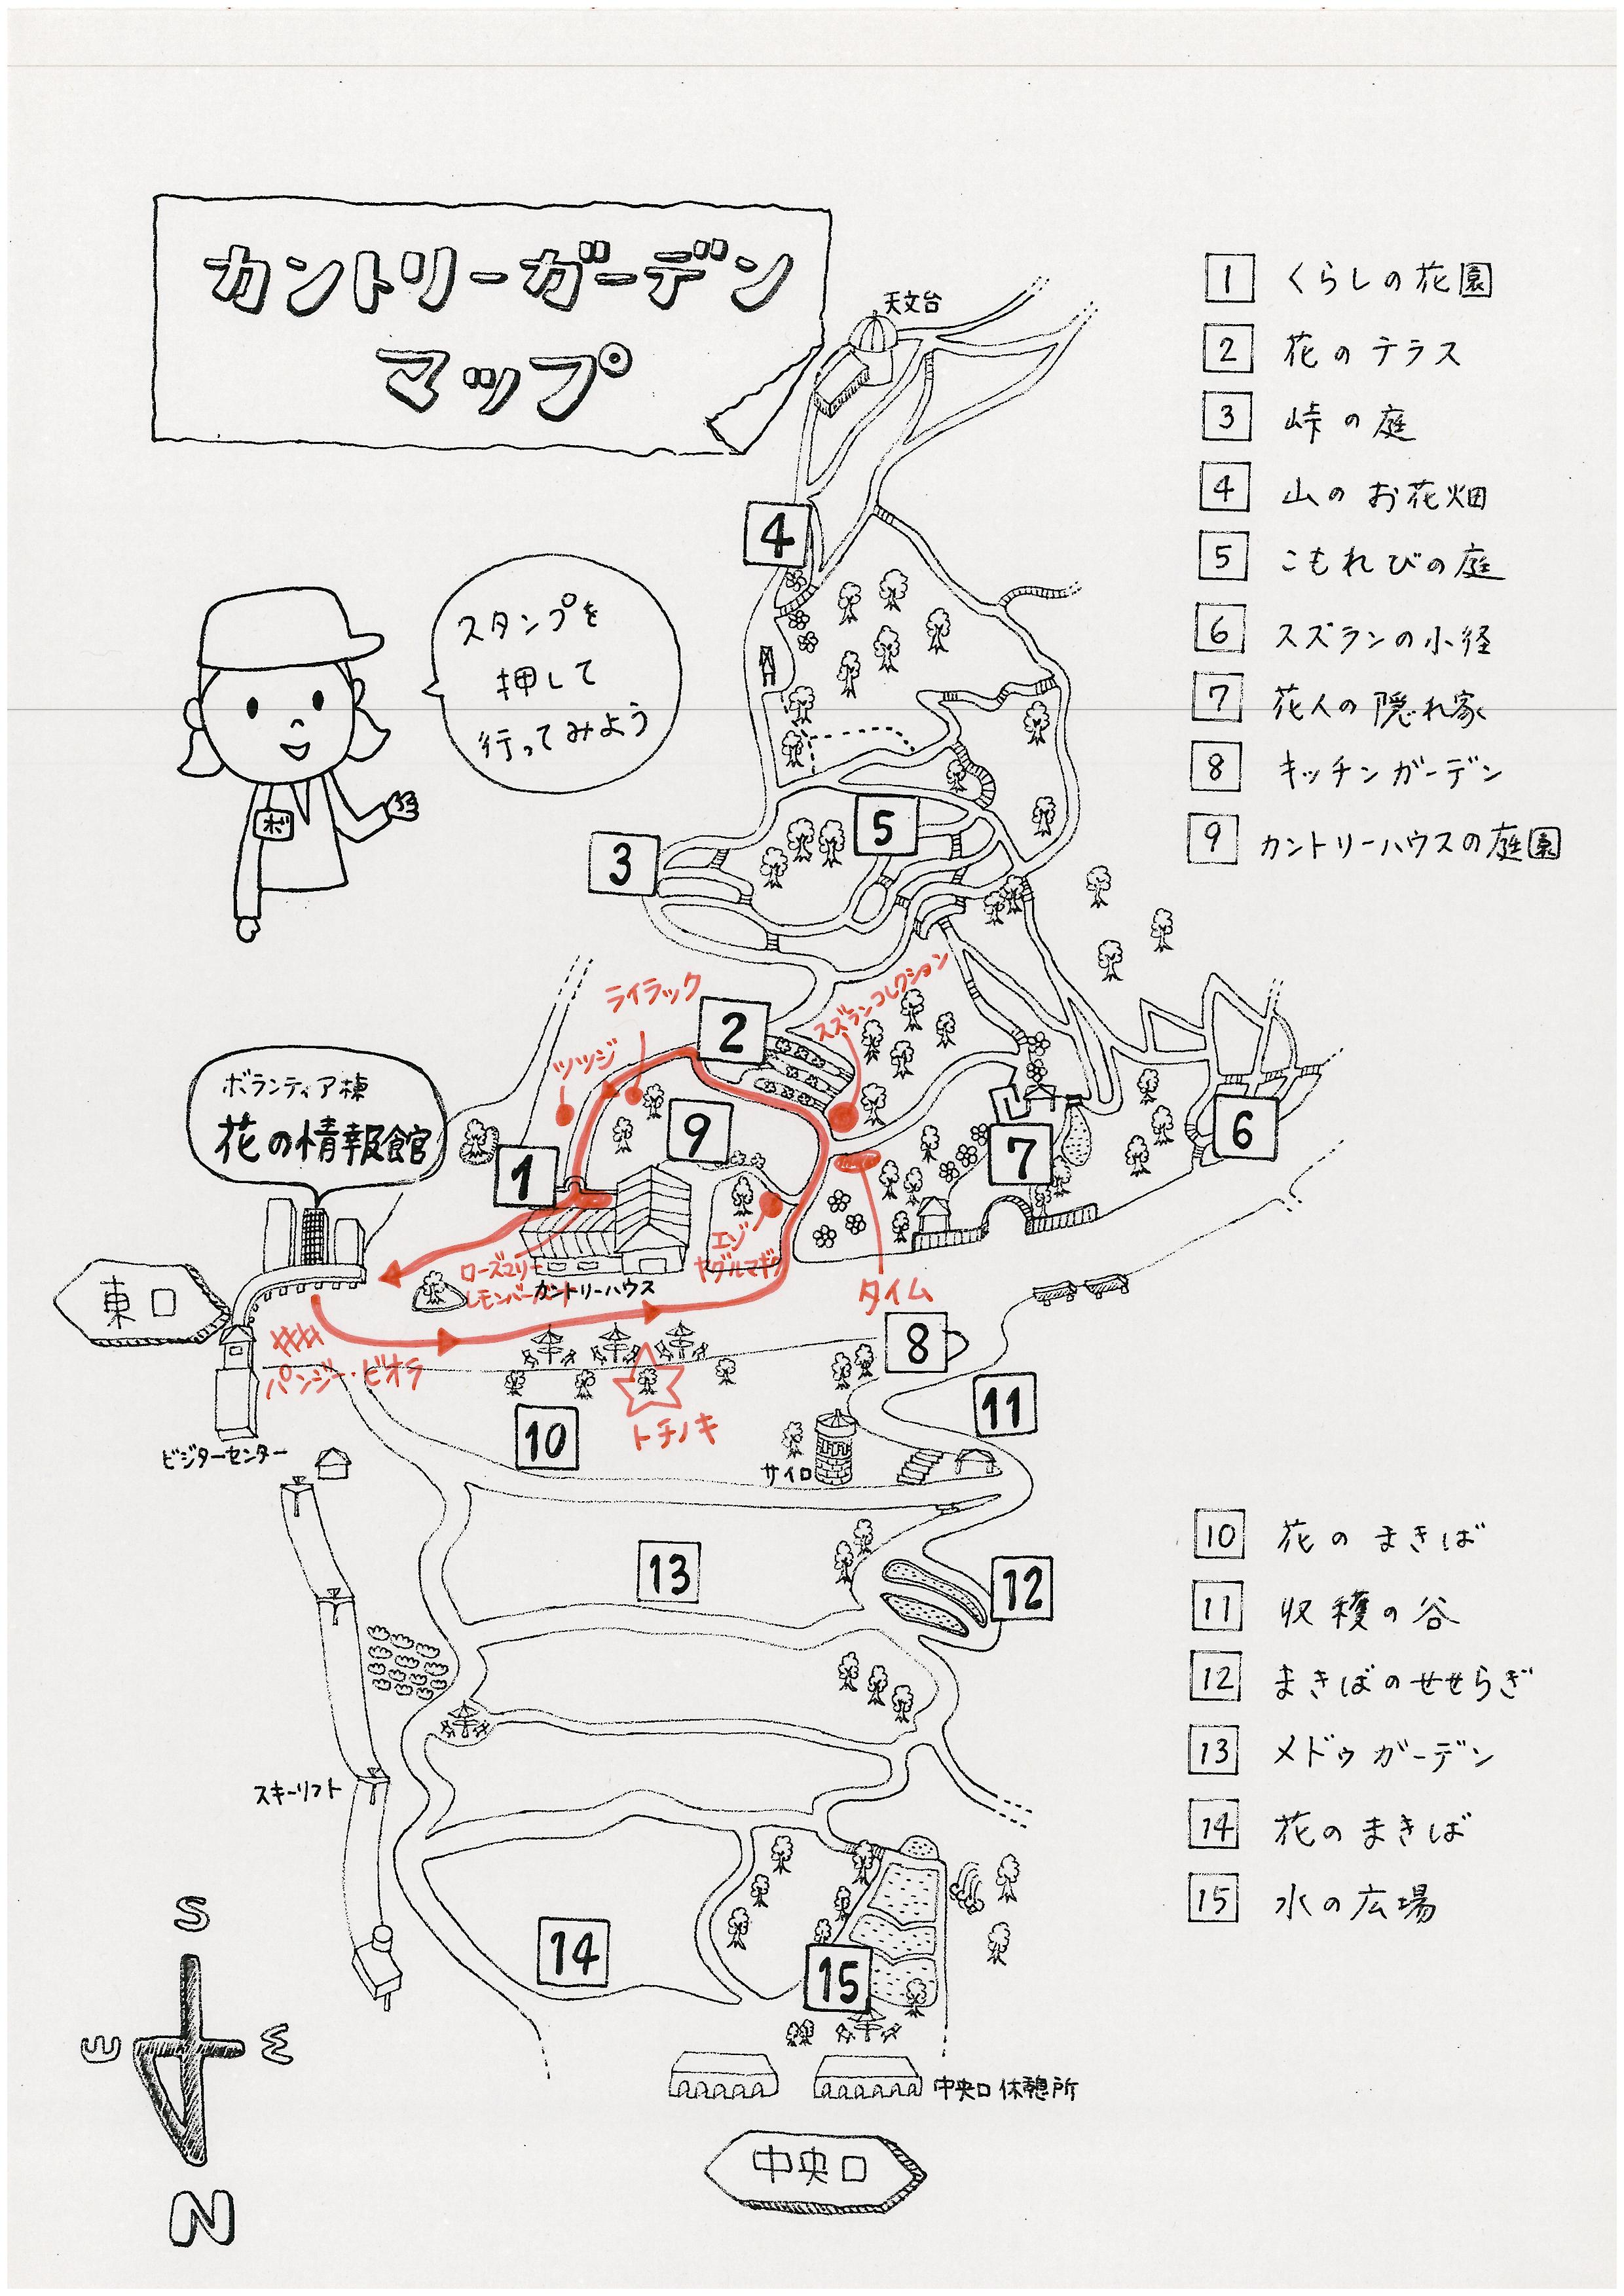 カントリーガーデン
マップ
天文台
1 くらしの花園
2 花のテラス
3 峠の庭
4 山のお花畑
5 こもれびの庭
6 スズランの小径
7 花人の隠れ家
8 キッチンガーデン
9 カントリーハウスの庭園
4
スタンプを
押して
行ってみよう
ボ
5
3
ライラック
スズランコレクション
2
ツツジ
ボランティア棟
花の情報館
9
1
7
6
東口
ローズマリー
カントリーハウス
エゾ
ヤグルマギク
タイム
8
パンジー・ビオラ
トチノキ
10
11
サイロ
ビジターセンター
13
12
10 花のまきば
11 収穫の谷
12 まきばのせせらぎ
13 メドゥガーデン
14 花のまきば
15 水の広場
スキーリフト
14
15
S
E
W
N
中央口休憩所
中央口